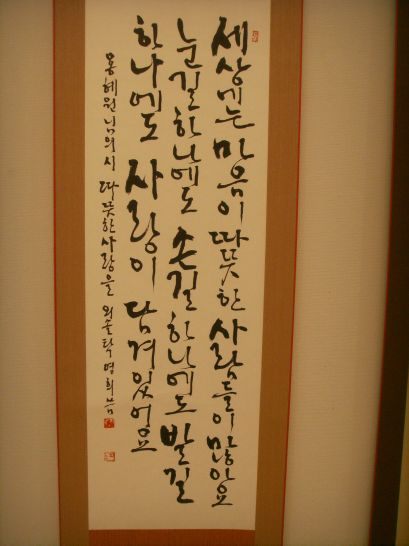 세상에는 마음이 따뜻한 사람들이 많아요
눈길 하나에도 손길 하나에도 발길
하나에도 사랑이 담겨있어요
용혜원님의 시 따뜻한 사랑을 외솔 탁영희 씀